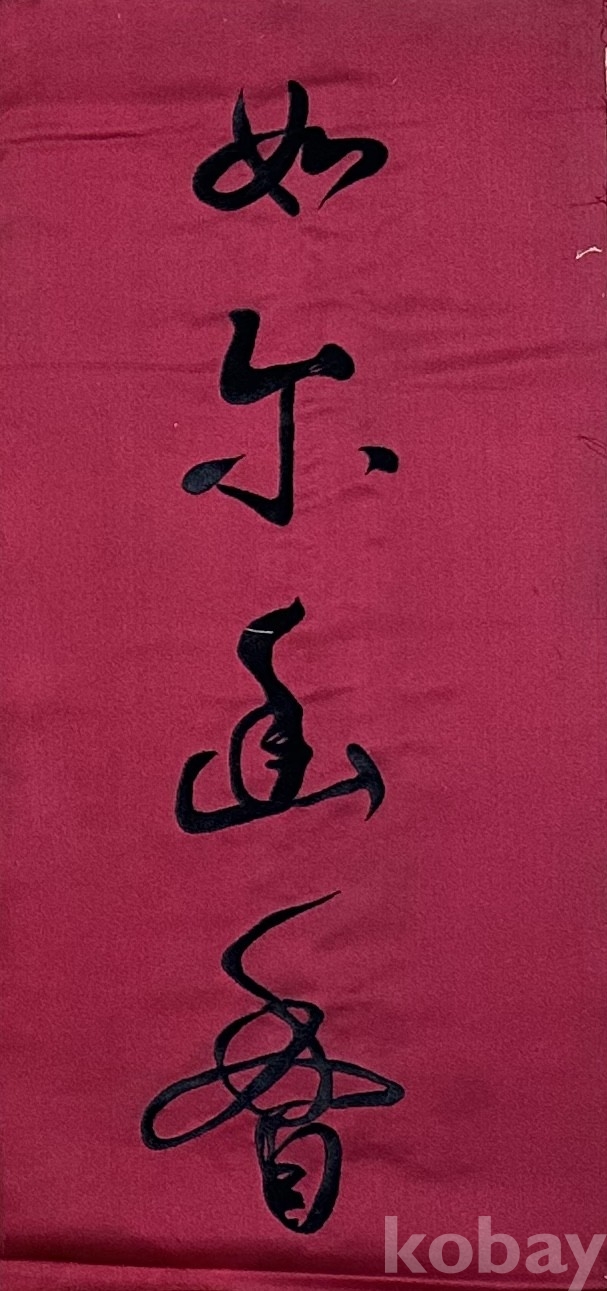 如
尔
幽
香
kobay